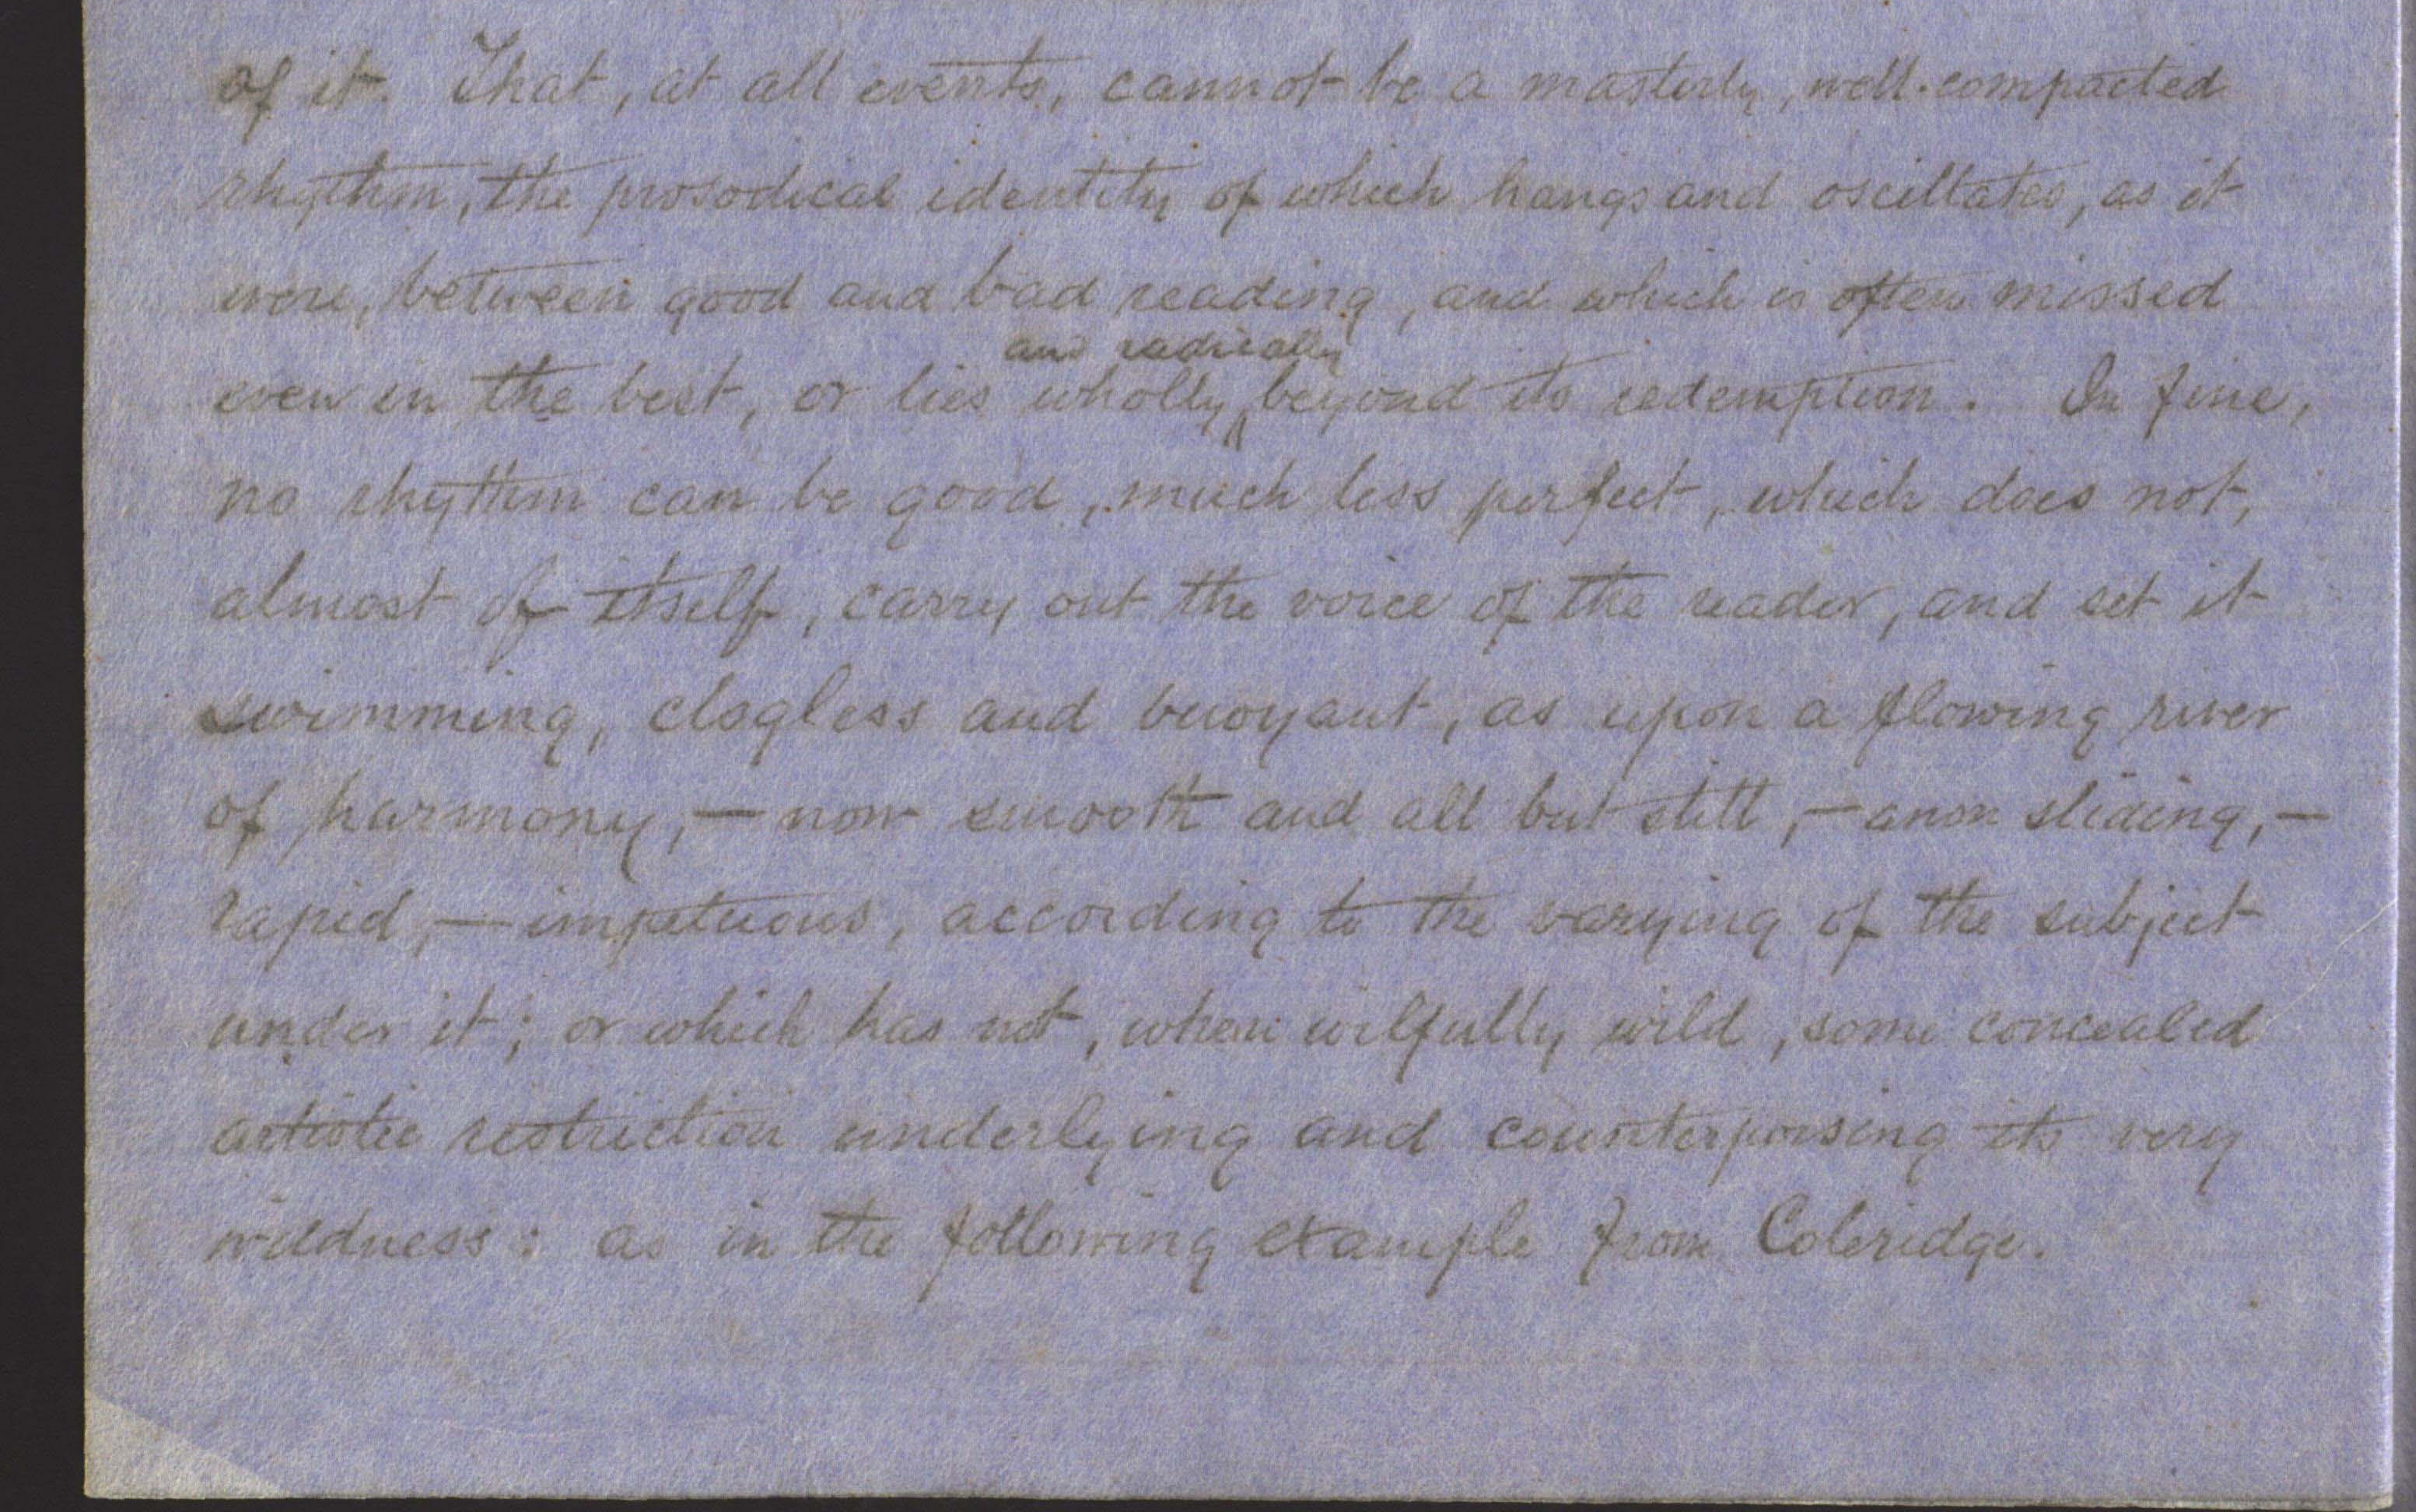 of it. That, at all events, cannot be a masterly, well-compacted
rhythm, the prosodical identity of which hangs and oscillates, as it
were, between good and bad reading, and which is often missed
and radically
even in the best, or lies wholly beyond its redemption. In fine,
no rhythm can be good, much less perfect, which does not,
almost of itself, carry out the voice of the reader, and set it
swimming, clogless and buoyant, as upon a flowing river
of harmony,—now smooth and all but still,—anon sliding,—
rapid,—impetuous, according to the varying of the subject
under it; or which has not, when wilfully wild, some concealed
artistic restriction underlying and counterpoising its very
wildness: as in the following example from Coleridge.